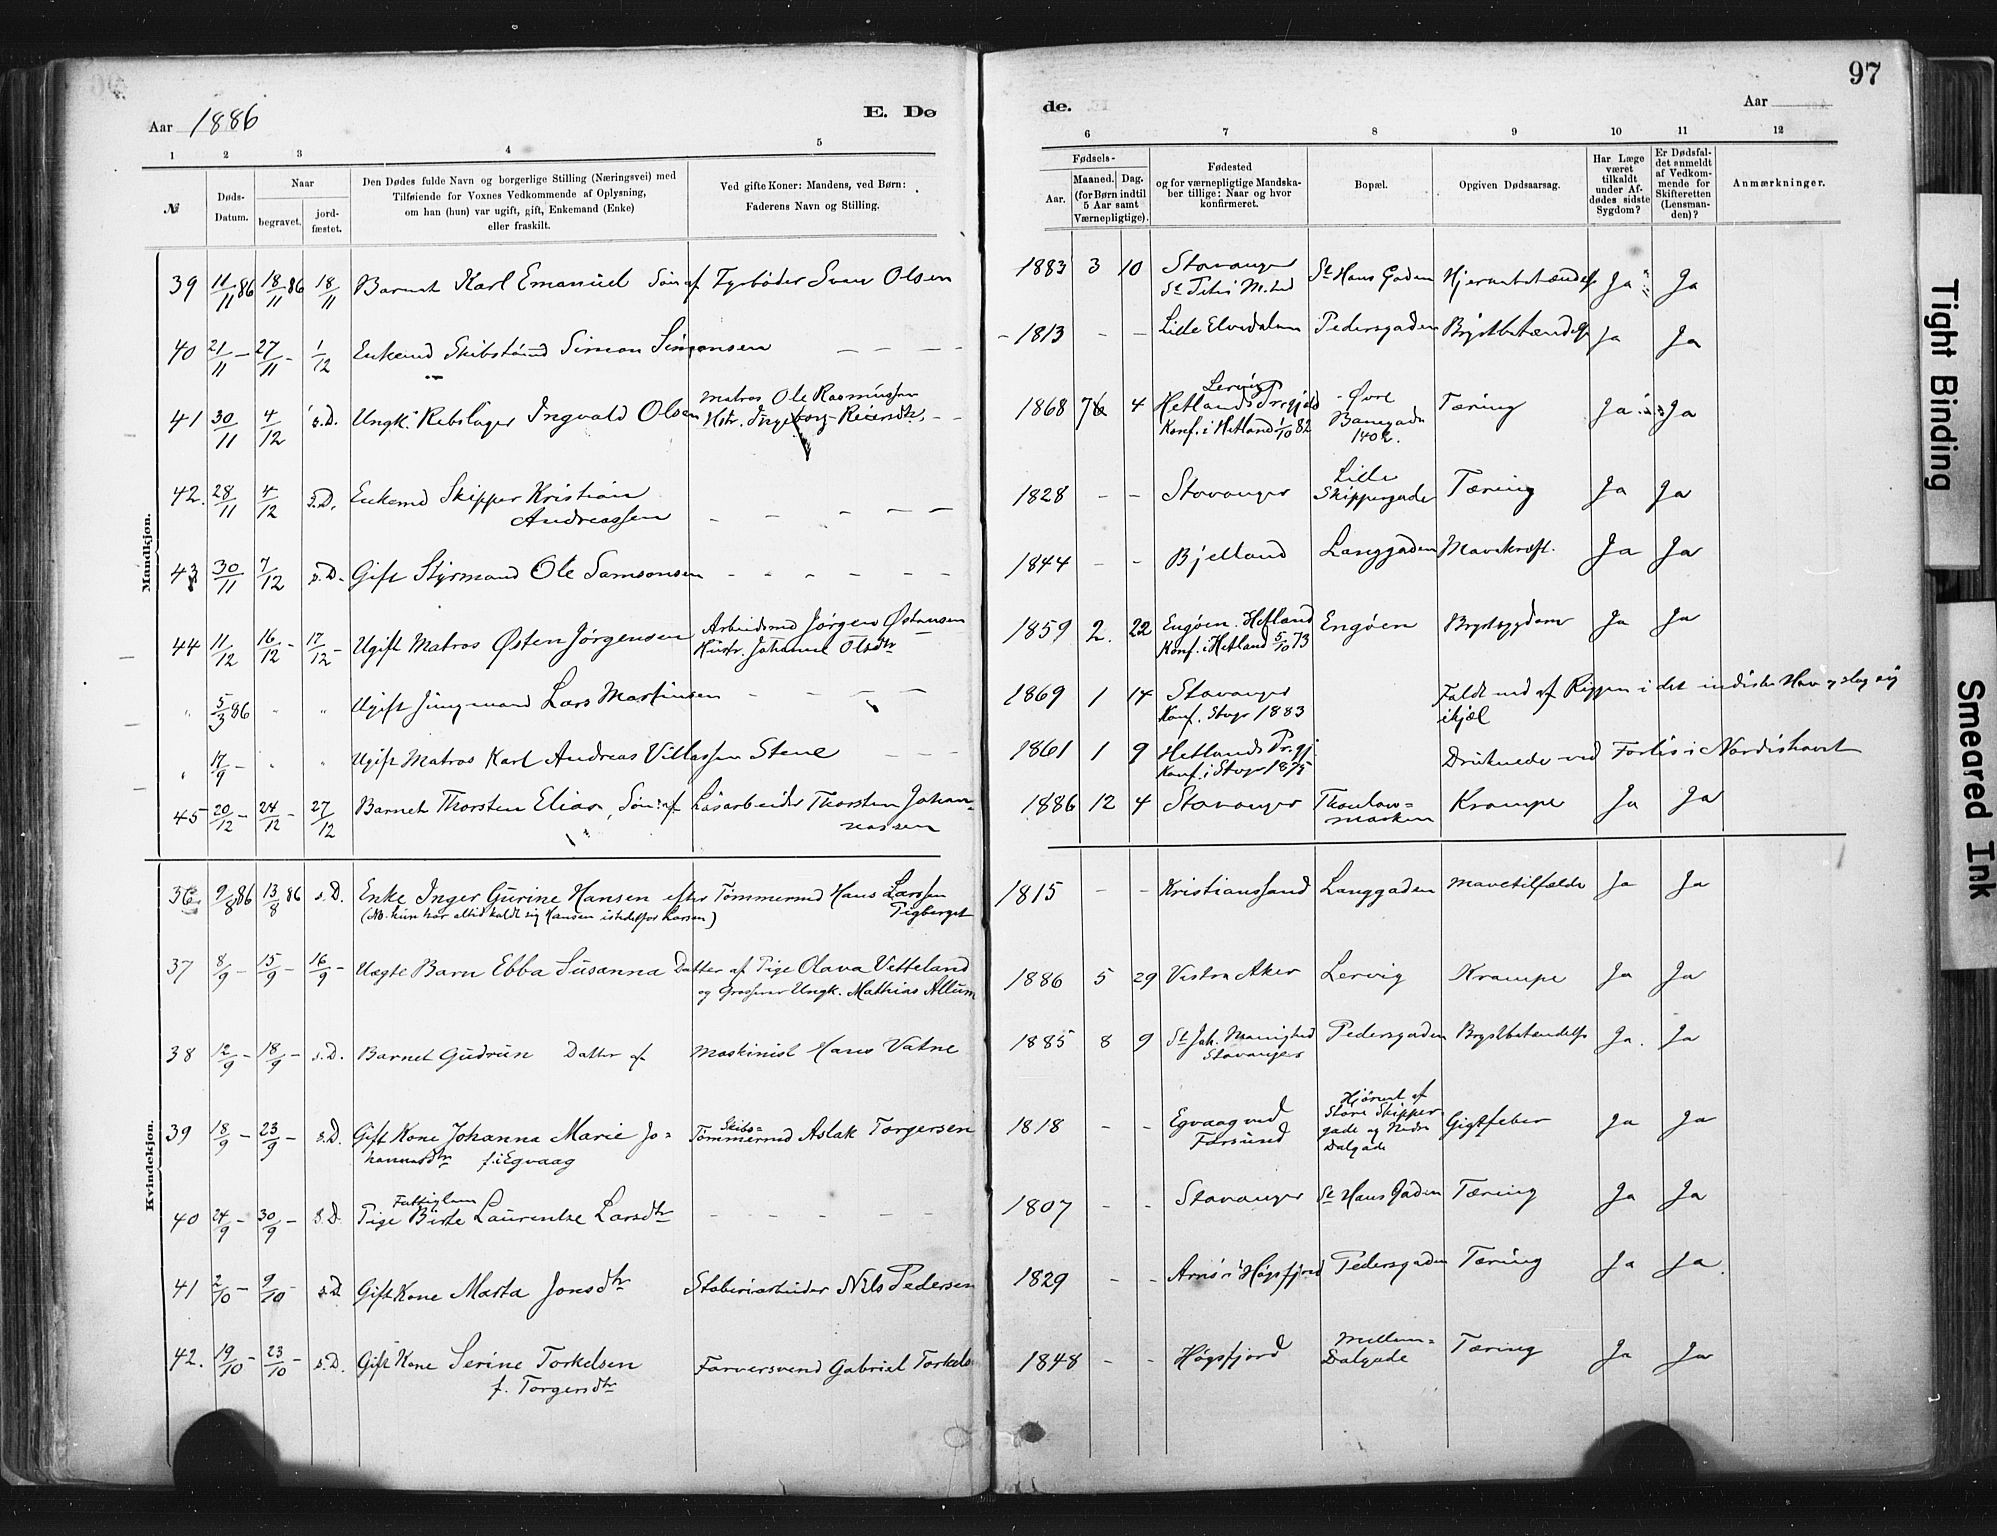 97
Aar 1886
E. Dø
de.
Aar
1 2 3 4 5 6 7 8 9 10 11 12
№
Døds-Datum.
Naar
begravet.
jord-fæstet.
Den Dødes fulde Navn og borgerlige Stilling (Næringsvei) med
Tilføiende for Voxnes Vedkommende af Oplysning,
om han (hun) var ugift, gift, Enkemand (Enke)
eller fraskilt.
Ved gifte Koner: Mandens, ved Børn:
Faderens Navn og Stilling.
Fødsels-
Aar.
Maaned. Dag.
(for Børn indtil
5 Aar samt
Værnepligtige).
Fødested
og for værnepligtige Mandska-
ber tillige: Naar og hvor
konfirmeret.
Bopæl.
Opgiven Dødsaarsag.
Har Læge
været
tilkaldt
under Af-
dødes sidste
Sygdom?
Er Dødsfal-
det anmeldt
af Vedkom-
mende for
Skifteretten
(Lensman-
den)?
Anmærkninger.
Mandkjøn.
39 11/11 86 18/11 86 18/11 Barnet Karl Emanuel Søn af Fyrbøder Svan Olsen 1883 3 10 Stavanger St Hans Gaden Hjernebetændelse Ja Ja
St Petri M.hed
40 21/11 - 27/11 - 1/12 Enkemd Skibstømd Simon Simonsen - - - 1813 - - Lille Elvedalen Pedersgaden Brystbetændelse Ja Ja
41 30/11 4/12 s.D. Ungk. Rebslager Ingvald Olsen Matros Ole Rasmussen
Hstr. Ingeborg Reiersdtr. 1868 7 4 Lervig
Hetlands Prgjeld
Konf. i Hetland 1/10 82 Øvre
Banegade
140 Tæring Ja Ja
42. 28/11 4/12 s.D. Enkemd Skipper Kristian
Andreassen - - - - - 1828 - - Stavanger Lille
Skippergade Tæring Ja Ja
43 30/11 7/12 s.D. Gift Styrmand Ole Samsonsen - - - - - 1844 - - Bjelland Langgaden Mavekræft. Ja Ja
44 11/12 16/12 - 17/12 - Ugift Matros Østen Jørgensen Arbeidsmd Jørgen Østensen
Hustr. Johanne Olsdtr 1859 2. 22 Engøen. Hetland
Konf. i Hetland 5/10 73 Engøen Brystsygdom Ja Ja
" 5/3 86 " " Ugift Jungmand Lars Martinsen - - - - 1869 1 14 Stavanger
Konf. Stvgr 1883 Faldt ned af Riggen i det indiske Hav og slog sig
ihjæl
" 17/9 - " " Ugift Matros Karl Andreas Villassen Stene - - 1861 1 9 Hetlands Prgj.
Konf. i Stvgr 1875 Druknede ved Forlis i Nordishavet
45 20/12 - 24/12 - 27/12 Barnet Thorsten Elias, Søn af Løsarbeider Thorsten Johan-
nessen 1886 12 4 Stavanger Thoulow-
marken Krampe Ja Ja
Kvindekjøn.
36 9/8 86 13/8 86 s.D. Enke Inger Gurine Hansen efter Tømmermd Hans Larssen
(NB. hun har altid kaldt sig Hansen istedetfor Larsen) Tigberget 1815 - - Kristianssand Langgaden Mavetilfælde Ja Ja
37 8/9 - 15/9 - 16/9 - Uægte Barn Ebba Susanna Datter af Pige Olava Vetteland
og Grosserer Ungk. Mathias Allum 1886 5 29 Vestre Aker Lervig Krampe Ja Ja
38 12/9 - 18/9 - s.D. Barnet Gudrun Datter af Maskinist Hans Vatne 1885 8 9 St Joh. Menighed
Stavanger Pedersgaden Brystbetændelse Ja. Ja
39 18/9 - 23/9 - s.D. Gift Kone Johanna Marie Jo-
hannesdtr f. i Egvaag Skibs-
Tømmermd Aslak Torgersen 1818 - - Egvaag ved
Farsund Hjørnet af
Store Skipper
gade og Nedre
Dalgade Gigtfeber Ja Ja
40 24/9 - 30/9 - s.D. Fattiglem
Pige Birte Laurentze Larsdtr - - - - - 1807 - - Stavanger St Hans Gaden Tæring Ja Ja
41 2/10 - 9/10 - s.D. Gift Kone Marta Jonsdtr Støberiarbeider Nils Pedersen 1829 - - Arnø i Høgsfjord Pedersgaden Tæring Ja Ja.
42. 19/10 - 23/10 - s.D. Gift Kone Serine Torkelsen
f. Torgersdtr Farversvend Gabriel Torkels 1848 - - Høgsfjord Mellem-
Dalgade Tæring Ja Ja
Tight Binding
Smeared Ink